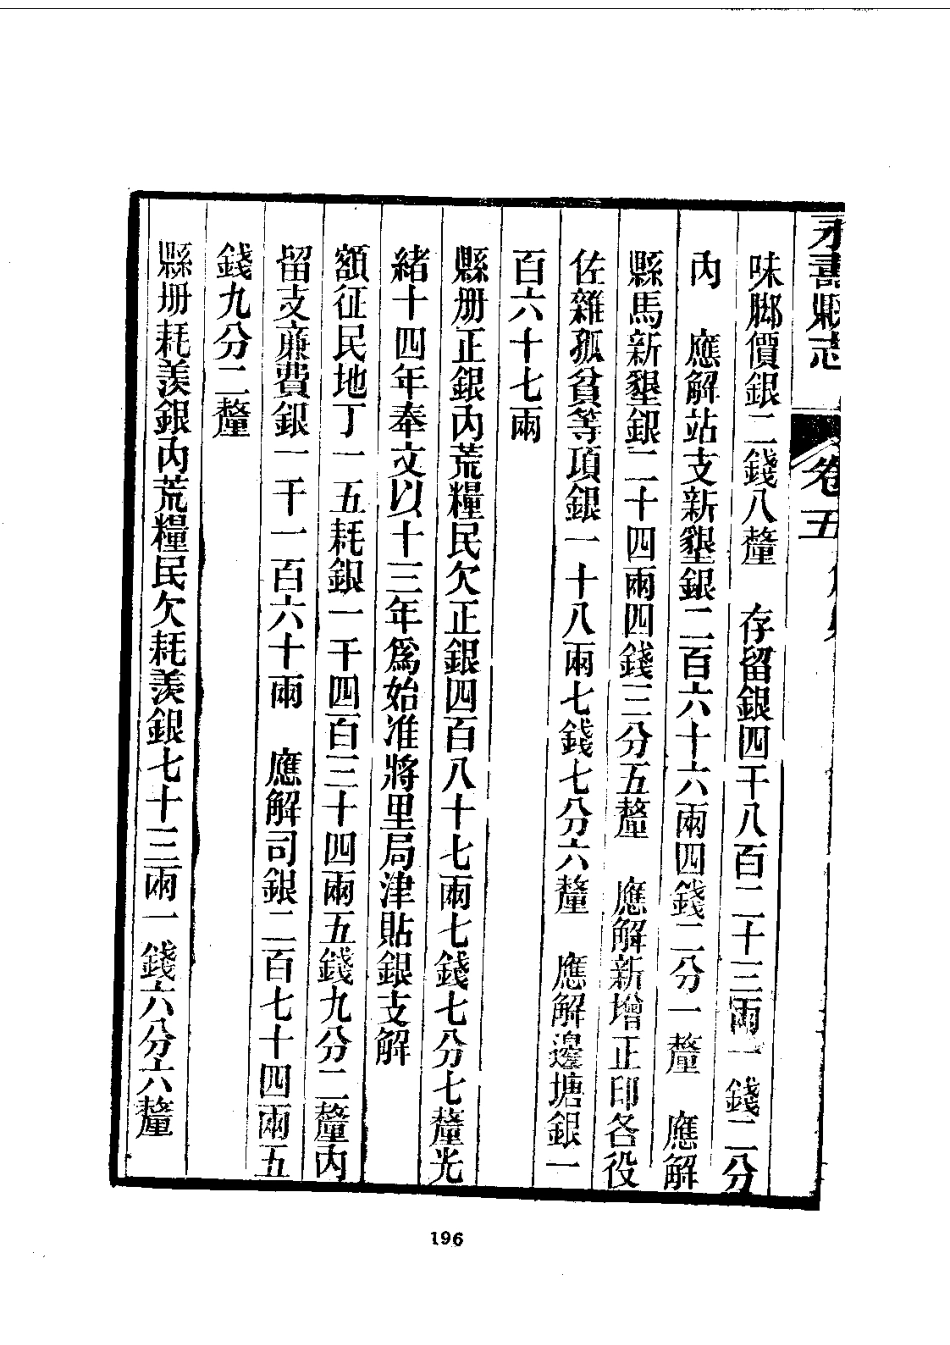 永壽縣志 卷五
味脚價銀二錢八釐 存留銀四千八百二十三兩一錢二分
內 應解站支新墾銀二百六十六兩四錢二分一釐 應解
縣馬新墾銀二十四兩四錢三分五釐 應解新增正印各役
佐雜孤貧等項銀一十八兩七錢七分六釐 應解邊塘銀一
百六十七兩
縣册正銀內荒糧民欠正銀四百八十七兩七錢七分七釐光
緒十四年奉文以十三年爲始准將里局津貼銀支解
額征民地丁一五耗銀一千四百三十四兩五錢九分二釐內
留支廉費銀一千一百六十兩 應解司銀二百七十四兩五
錢九分二釐
縣册耗羨銀內荒糧民欠耗羨銀七十三兩一錢六分六釐
196